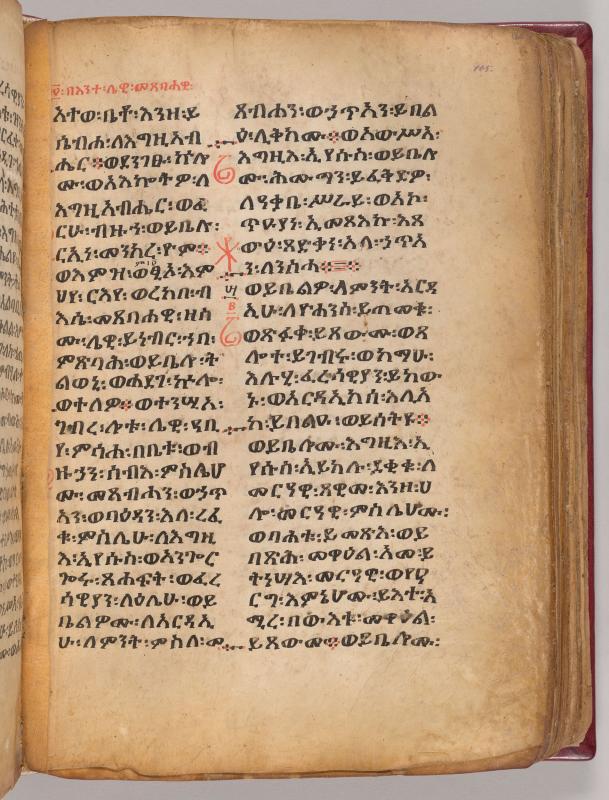 ፬፡በእንተ፡ሌዊ፡መጸብሓዊ፡
105.
አተወ፡ቤቶ፡እንዘ፡ይ
ሴብሖ፡ለእግዚአብ
ሔር፨ወደንገፁ፡ኵሉ
ሙ፡ወአእኰትዎ፡ለ
እግዚአብሔር፡ወፈ
ርሁ፡ብዙኀ፡ወይቤሉ፡
ርኢነ፡መንከረ፡ዮም፨
ወእምዝ፡ወፂኦ፡እም
ህየ፡ርእየ፡ወረከበ፡ብ
እሴ፡መጸብሐዌ፡ዘስ
ሙ፡ሌዊ፡ይነብር፡ኀበ፡
ምጽባሕ፡ወይቤሎ፡ት
ልወኒ፡ወኀደገ፡ኵሎ፡
ወተለዎ፨ወተንሢኦ፡
ገብረ፡ሎቱ፡ሌዊ፡ዓቢ
የ፡ምሳሐ፡በቤቱ፡ወብ
ዙኃን፡ሰብእ፡ምስሌሆ
ሙ፡መጸብሓን፡ወኃጥ
ኣን፡ወባዕዳን፡እለ፡ረፈ
ቁ፡ምስሌሁ፡ለእግዚ
እ፡ኢየሱስ፡ወአንጐር
ጐሩ፡ጸሐፍት፡ወፈሪ
ሳዊያን፡ላዕሌሁ፡ወይ
ቤልዎሙ፡ለአርዳኢ
ሁ፡ለምንት፡ምስለ፡መ
ጸብሐን፡ወኃጥኣን፡ይበል
ዕ፡ሊቅክሙ፨ወአውሥአ፡
እግዚእ፡ኢየሱስ፡ወይቤሎ
ሙ፡ሕሙማን፡ይፈቅድዎ፡
ለዓቃቤ፡ሥራይ፡ወአኮ፡
ጥዑያን፡ኢመጻእኩ፡እጸ
ውዕ፡ጻድቃነ፡አላ፡ኃጥኣ
ነ፡ለንስሓ፨
ወይቤልዎ፡ለምንት፡አርዳ
ኢሁ፡ለዮሐንስ፡ይጠመቁ፡
ወጽፋቀ፡ይጸውሙ፡ወጸ
ሎተ፡ይገብሩ፡ወከማሁ፡
እሉሂ፡ፈሪሳዊያን፡ይከው
ኑ፡ወአርዳኢከሰ፡አሊአ
ከ፡ይበልዑ፡ወይሰትዩ፨
ወይቤሎሙ፡እግዚእ፡ኢ
የሱስ፡ኢይክሉ፡ደቂቁ፡ለ
መርዓዊ፡ጸዊመ፡እንዘ፡ሀ
ሎ፡መርዓዊ፡ምስሌሆሙ፡
ወባሕቱ፡ይመጽእ፡ወይ
በጽሕ፡መዋዕል፡አመ፡ይ
ትነሣእ፡መርዓዊ፡ወየዐ
ርግ፡እምኔሆሙ፡ይእተ፡አ
ሚረ፡በውእቱ፡መዋዕል፡
ይጸውሙ፨ወይቤሎሙ፡